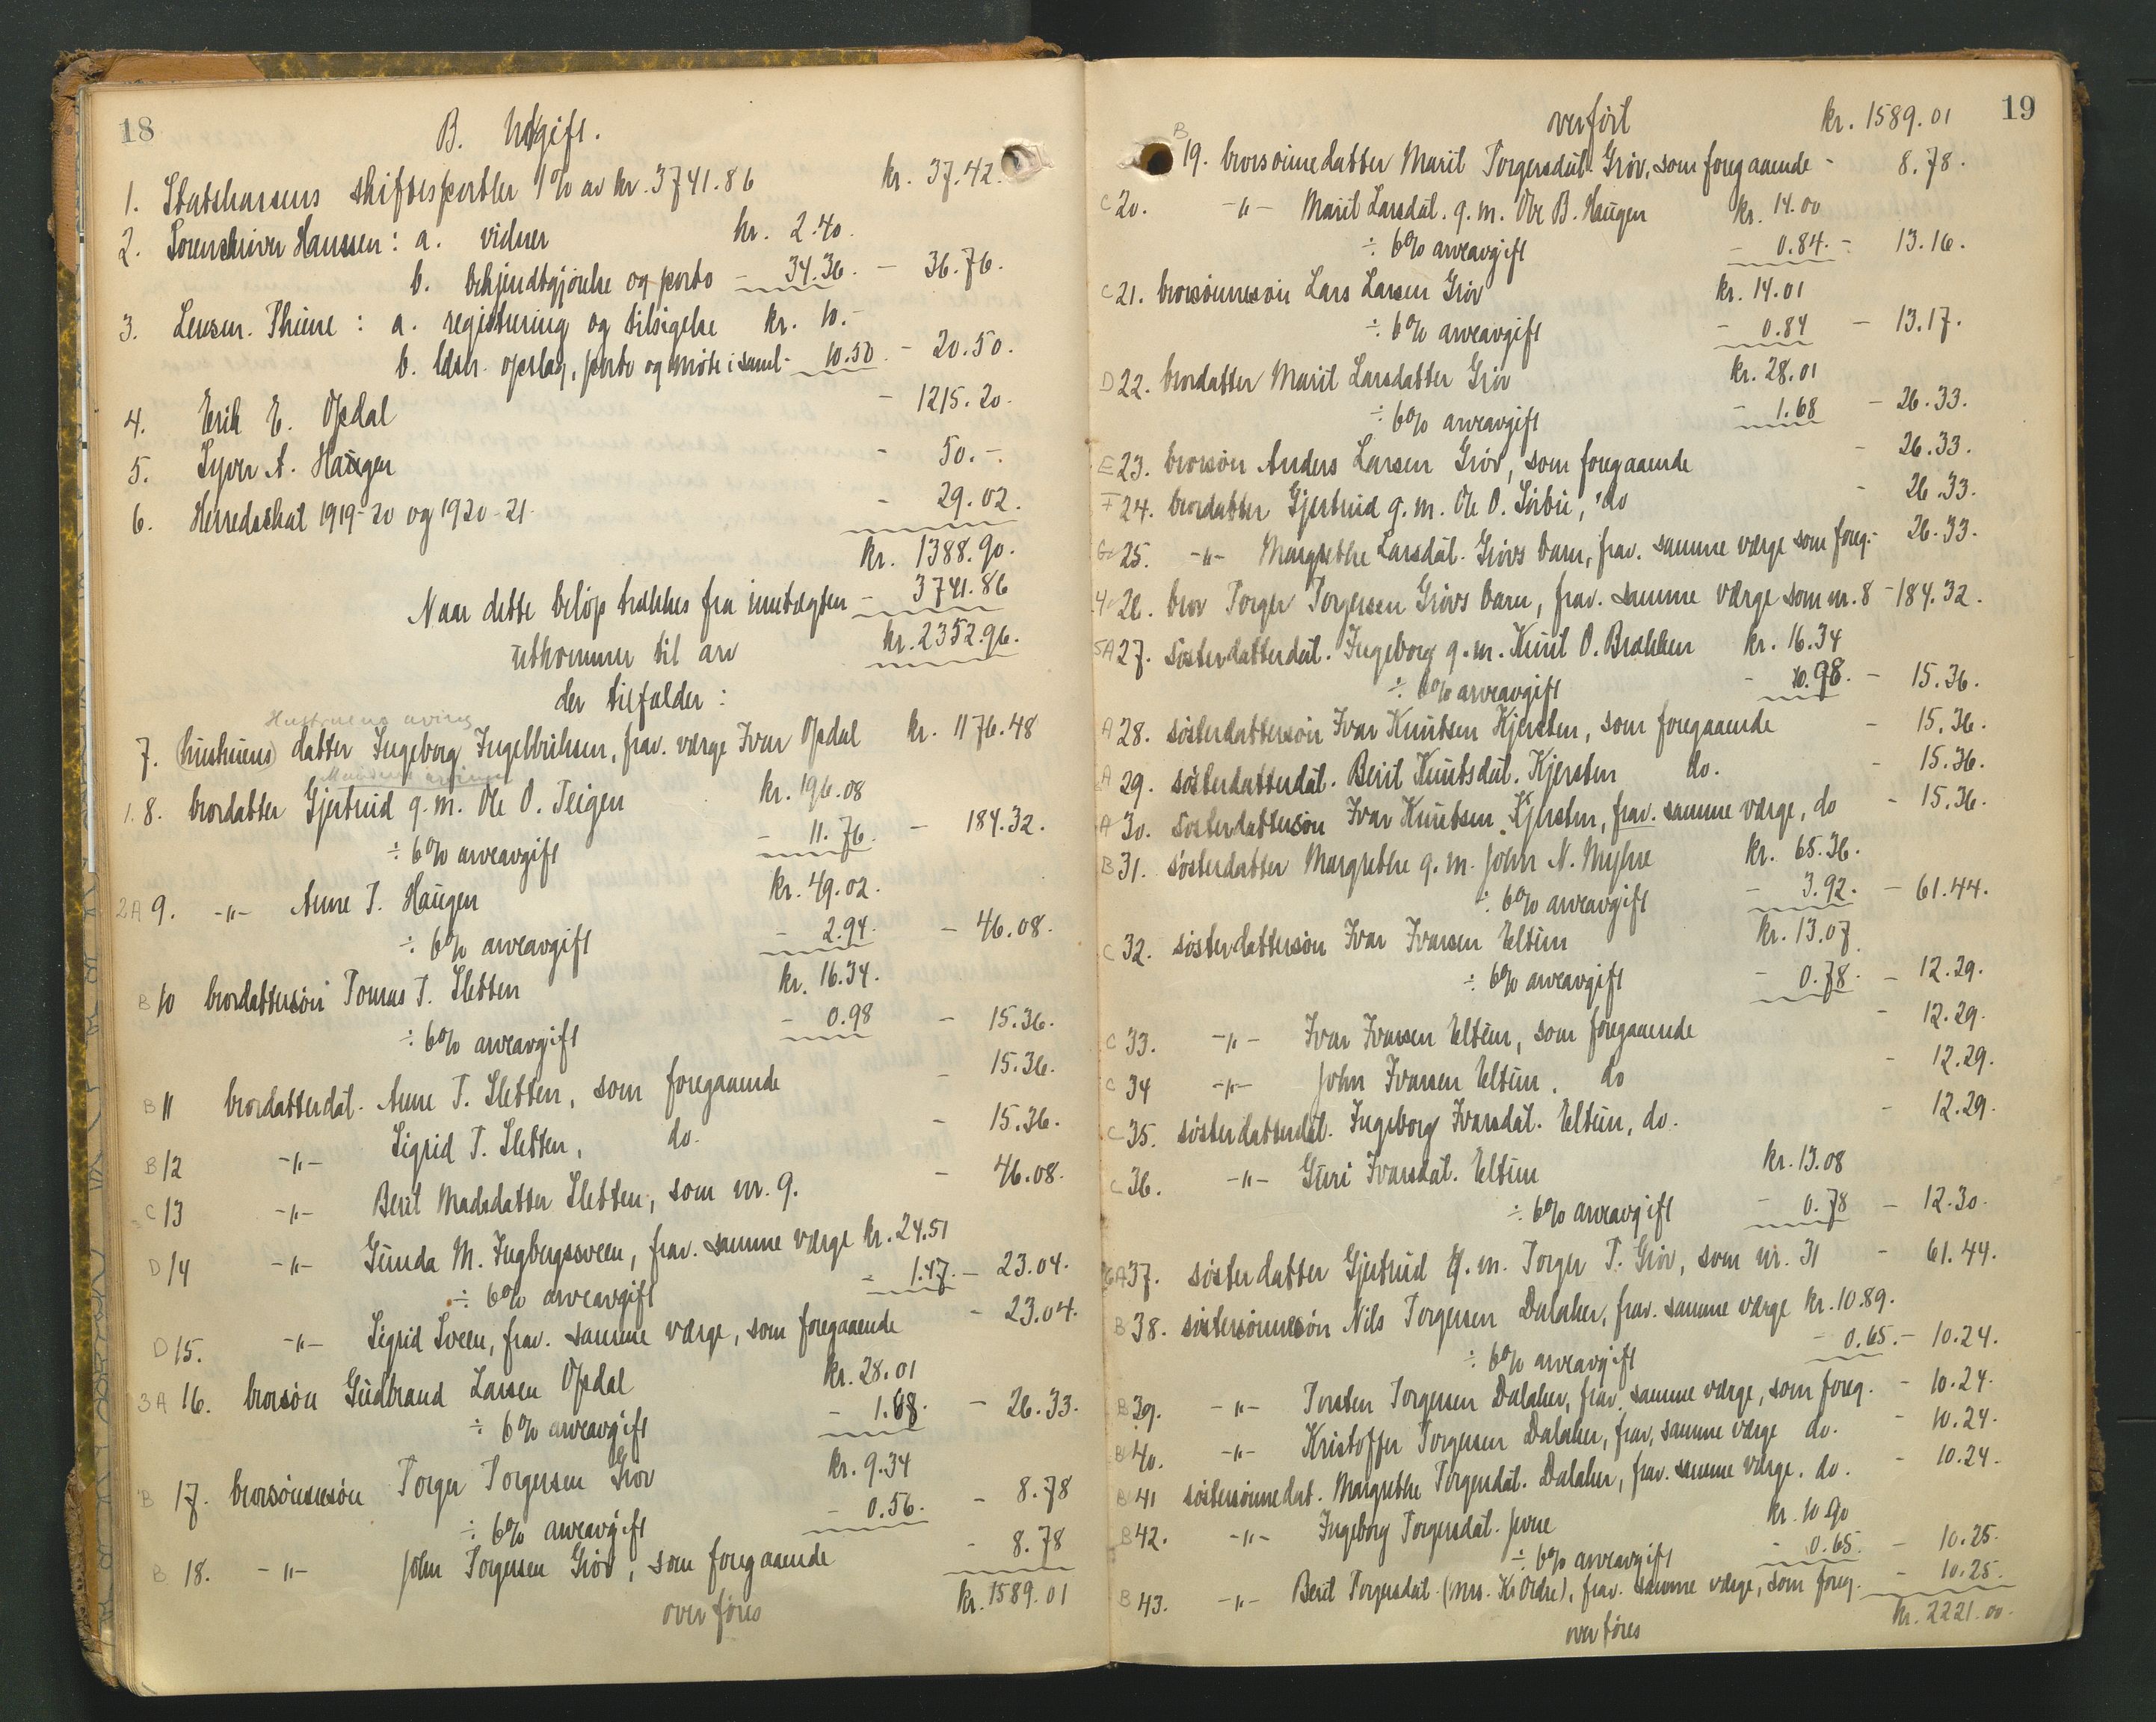 18
B. Utgift.
1. Statskassens skiftesportler 1% av kr. 3741.86 kr. 37.42.
2. Sorenskriver Hanssen: a. vidner kr. 2.40.
b. bekjendtgjørelse og porto - 34.36. - 36.76.
3. Lensm. Thune: a. registrering og tilsigelse kr. 10.-
b. opslag, porto og møte i saml. - 10.50 - 20.50.
4. Erik E. Opdal - 1215.20.
5. Syver A. Haugen - 50.-.
6. Herredsskat 1919-20 og 1920-21. - 29.02.
kr. 1388.90.
Naar dette beløp trækkes fra indtægten - 3741.86
utkommer til arv kr. 2352.96.
der tilfalder:
Hustruens arving
7. (hustruens) datter Ingeborg Ingebriksen, frav. værge Ivar Opdal kr. 1176.48
Mandens arvinger
1. 8. brordatter Gjertrud g.m. Ole O. Teigen kr. 196.08
÷ 6% arveavgift - 11.76. - 184.32.
2A 9. -"- Anne T. Haugen kr. 49.02.
÷ 6% arveavgift - 2.94. - 46.08.
B 10 brordattersøn Tomas T. Sletten kr. 16.34.
÷ 6% arveavgift - 0.98 - 15.36.
B 11 brordatterdat. Anne T. Sletten, som foregaaende - 15.36.
B 12 -"- Sigrid T. Sletten, do. - 15.36.
C 13 -"- Berit Madsdatter Sletten, som nr. 9. - 46.08.
D 14 -"- Gunda M. Ingbergssveen, frav. samme værge kr. 24.51
÷ 6% arveavgift - 1.47. - 23.04.
D 15. -"- Sigrid Sveen, frav. samme værge, som foregaaende - 23.04.
3A 16. brorsøn Gudbrand Larsen Opdal kr. 28.01
÷ 6% arveavgift - 1.68. - 26.33.
B 17. brorsønnesøn Torger Torgersen Grøv kr. 9.34
÷ 6% arveavgift - 0.56. - 8.78
B 18. -"- John Torgersen Grøv, som foregaaende - 8.78
overføres kr. 1589.01
19
overført kr. 1589.01
B 19. brorsønnedatter Marit Torgersdat. Grøv, som foregaaende - 8.78.
C 20. -"- Marit Larsdat. g.m. Ole B. Haugen kr. 14.00
÷ 6% arveavgift - 0.84. - 13.16.
C 21. brorsønnesøn Lars Larsen Grøv kr. 14.01
÷ 6% arveavgift - 0.84 - 13.17.
D 22. brordatter Marit Larsdatter Grøv kr. 28.01
÷ 6% arveavgift - 1.68 - 26.33.
E 23. brorsøn Anders Larsen Grøv, som foregaaende - 26.33.
F 24. brordatter Gjertrud g.m. Ole O. Sørbu, do - 26.33.
G 25. -"- Margrethe Larsdat. Grøvs barn, frav. samme værge som foreg. - 26.33.
4 26. bror Torger Torgersen Grøvs barn, frav. samme værge som nr. 8 - 184.32.
5A 27. søsterdatterdat. Ingeborg g.m. Knut O. Brækken kr. 16.34
÷ 6% arveavgift - 0.98. - 15.36.
A 28. søsterdattersøn Ivar Knutsen Kjersten, som foregaaende - 15.36.
A 29. søsterdatterdat. Berit Knutsdat. Kjersten do. - 15.36.
A 30. søsterdattersøn Ivar Knutsen Kjersten, frav. samme værge, do - 15.36.
B 31. søsterdatter Margrethe g.m. John N. Myhre kr. 65.36.
÷ 6% arveavgift - 3.92. - 61.44.
C 32. søsterdattersøn Ivar Ivarsen Eltun kr. 13.07.
÷ 6% arveavgift - 0.78. - 12.29.
C 33. -"- Ivar Ivarsen Eltun, som foregaaende - 12.29.
C 34 -"- John Ivarsen Eltun. do - 12.29.
C 35. søsterdatterdat. Ingeborg Ivarsdat. Eltun, do. - 12.29.
C 36. -"- Guri Ivarsdat. Eltun kr. 13.08
÷ 6% arveavgift - 0.78 - 12.30.
6A 37. søsterdatter Gjertrud g.m. Torger T. Grøv, som nr. 31 - 61.44.
B 38. søstersønnesøn Nils Torgersen Dalaker, frav. samme værge kr. 10.89.
÷ 6% arveavgift - 0.65. - 10.24.
B 39. -"- Torsten Torgersen Dalaker, frav. samme værge, som foreg. - 10.24.
B 40. -"- Kristoffer Torgersen Dalaker, frav. samme værge do. - 10.24.
B 41 søstersønnedat. Margrethe Torgersdat. Dalaker, frav. samme værge. do. - 10.24.
B 42. -"- Ingeborg Torgersdat. kr. 10.90
÷ 6% arveavgift - 0.65. - 10.25.
B 43. -"- Berit Torgersdat. (Mrs. ), frav. samme værge, som foreg. - 10.25.
overføres kr. 2221.00.